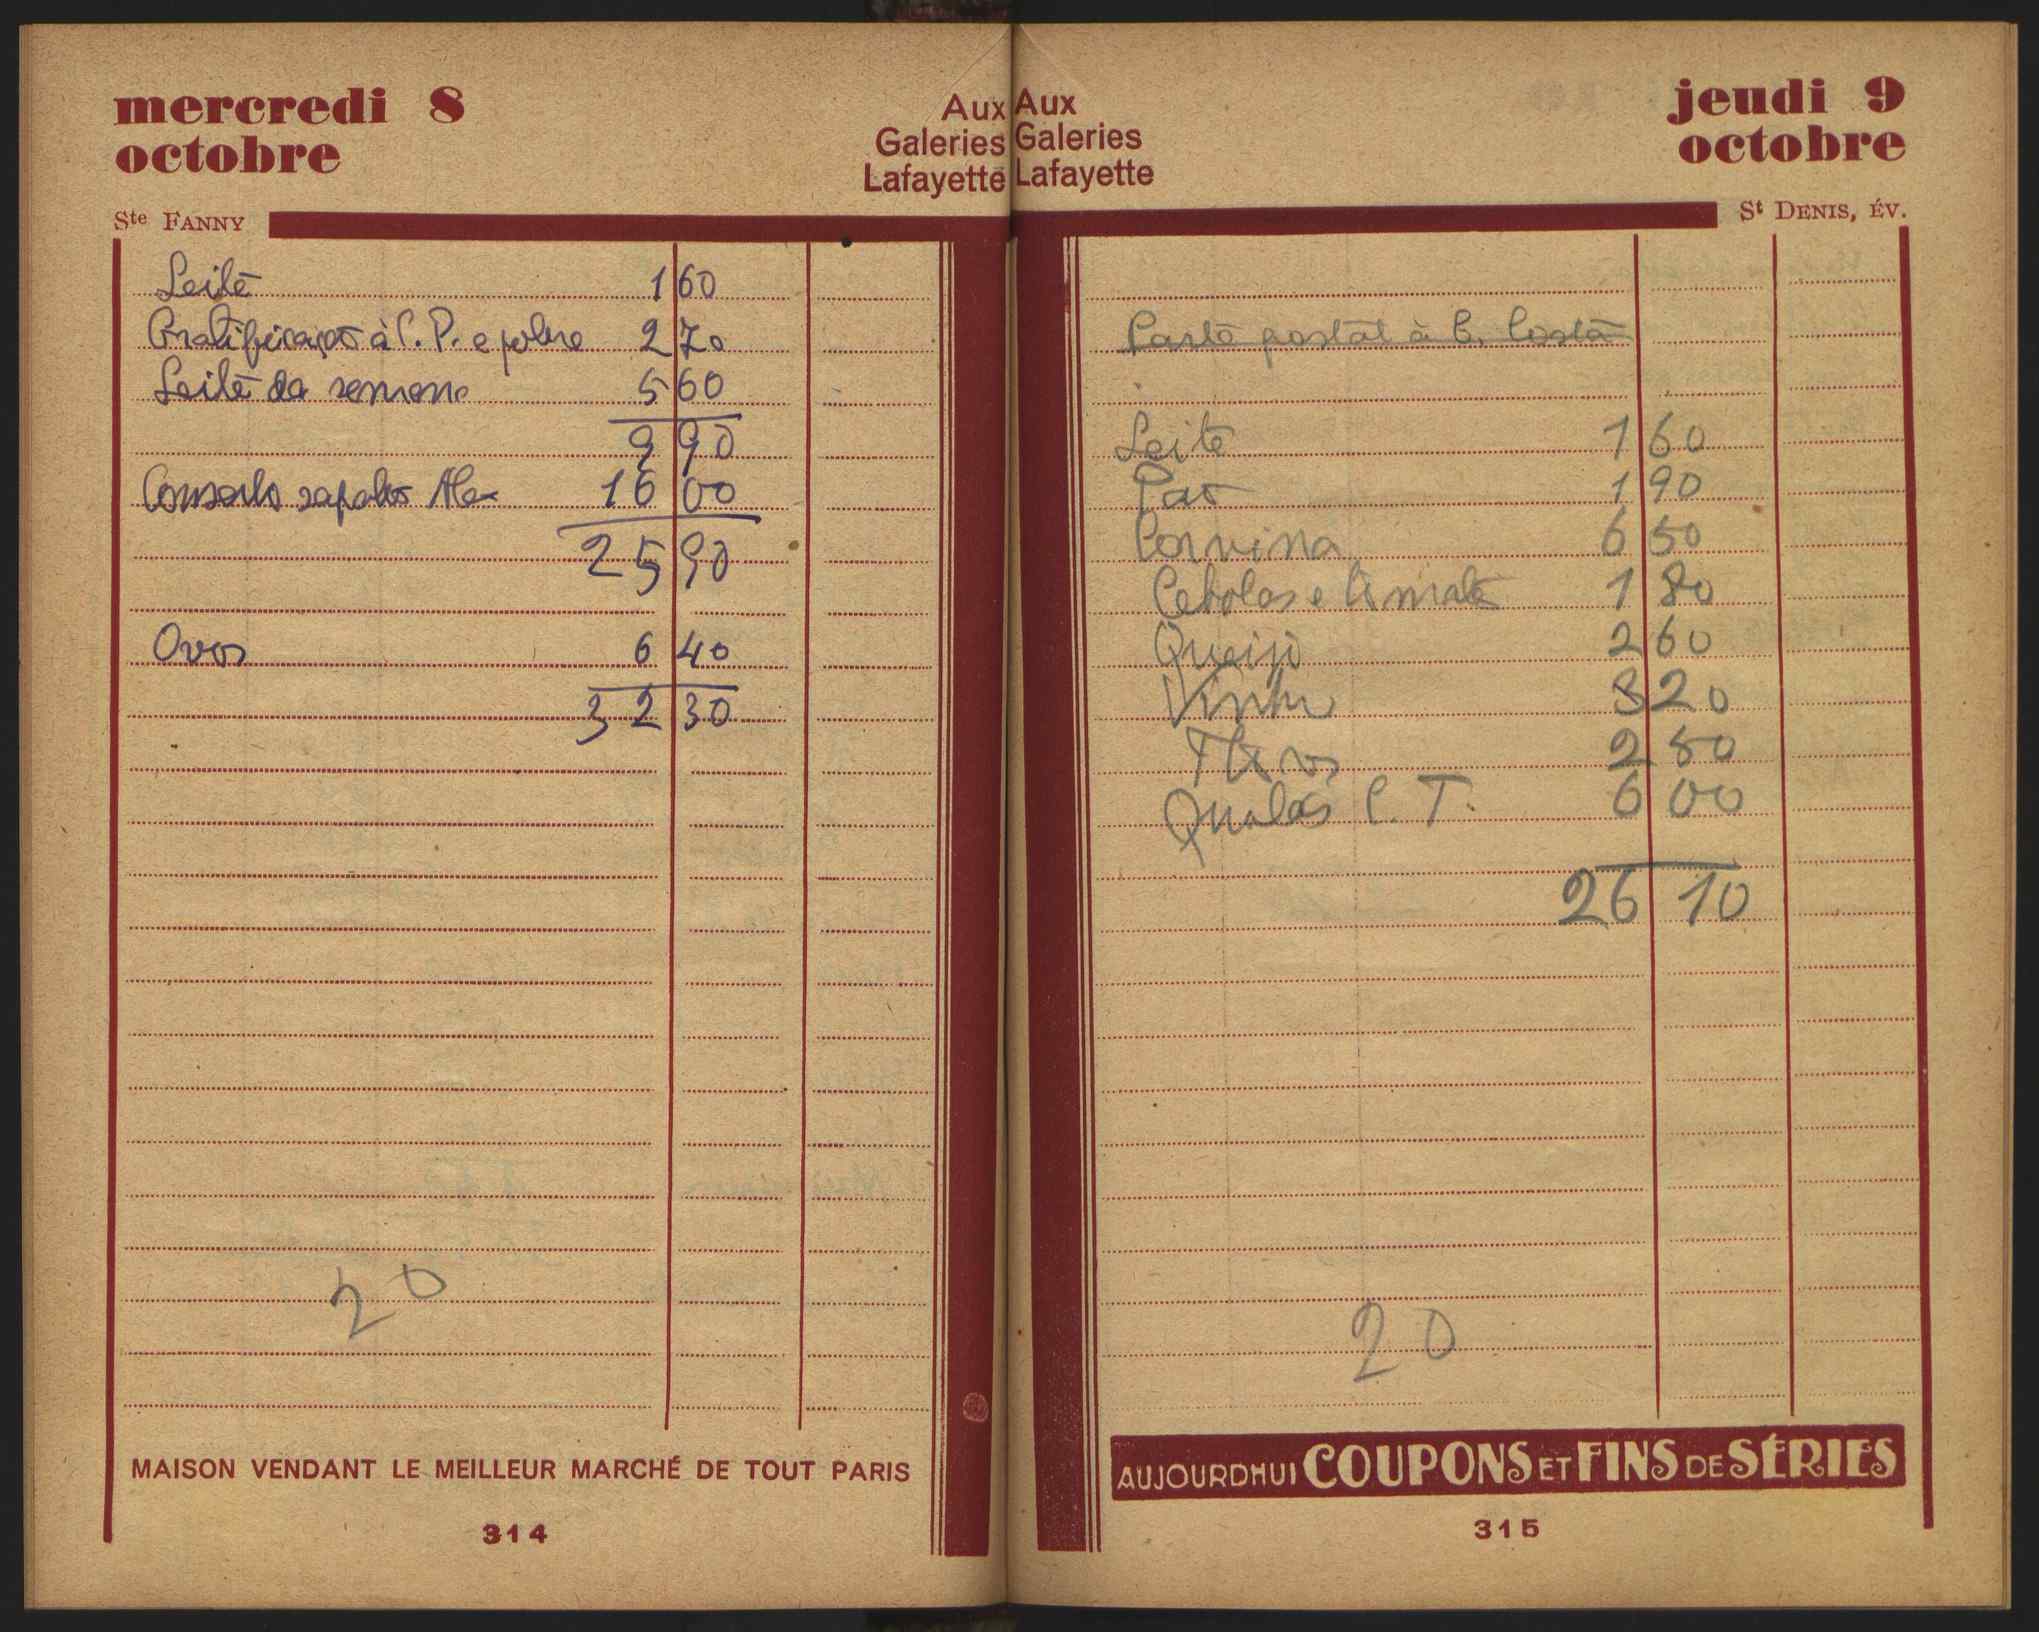 mercredi 8
octobre
Aux
Galeries
Lafayette
Ste FANNY
Leite 1 60
Gratificação à C. P. e pobre 2 70
Leite da semana 5 60
9 90
Conserto sapatos Alex 16 00
25 90
Ovos 6 40
32 30
20
MAISON VENDANT LE MEILLEUR MARCHÉ DE TOUT PARIS
314
Aux
Galeries
Lafayette
jeudi 9
octobre
St DENIS, ÉV.
Carta postal à C. Costa
Leite 1 60
Pão 1 90
Corvina 6 50
Cebolas e tomate 1 80
Queijo 2 60
Vinho 3 20
2 50
C. T. 6 00
26 10
20
AUJOURDHUI COUPONS ET FINS DE SÉRIES
315